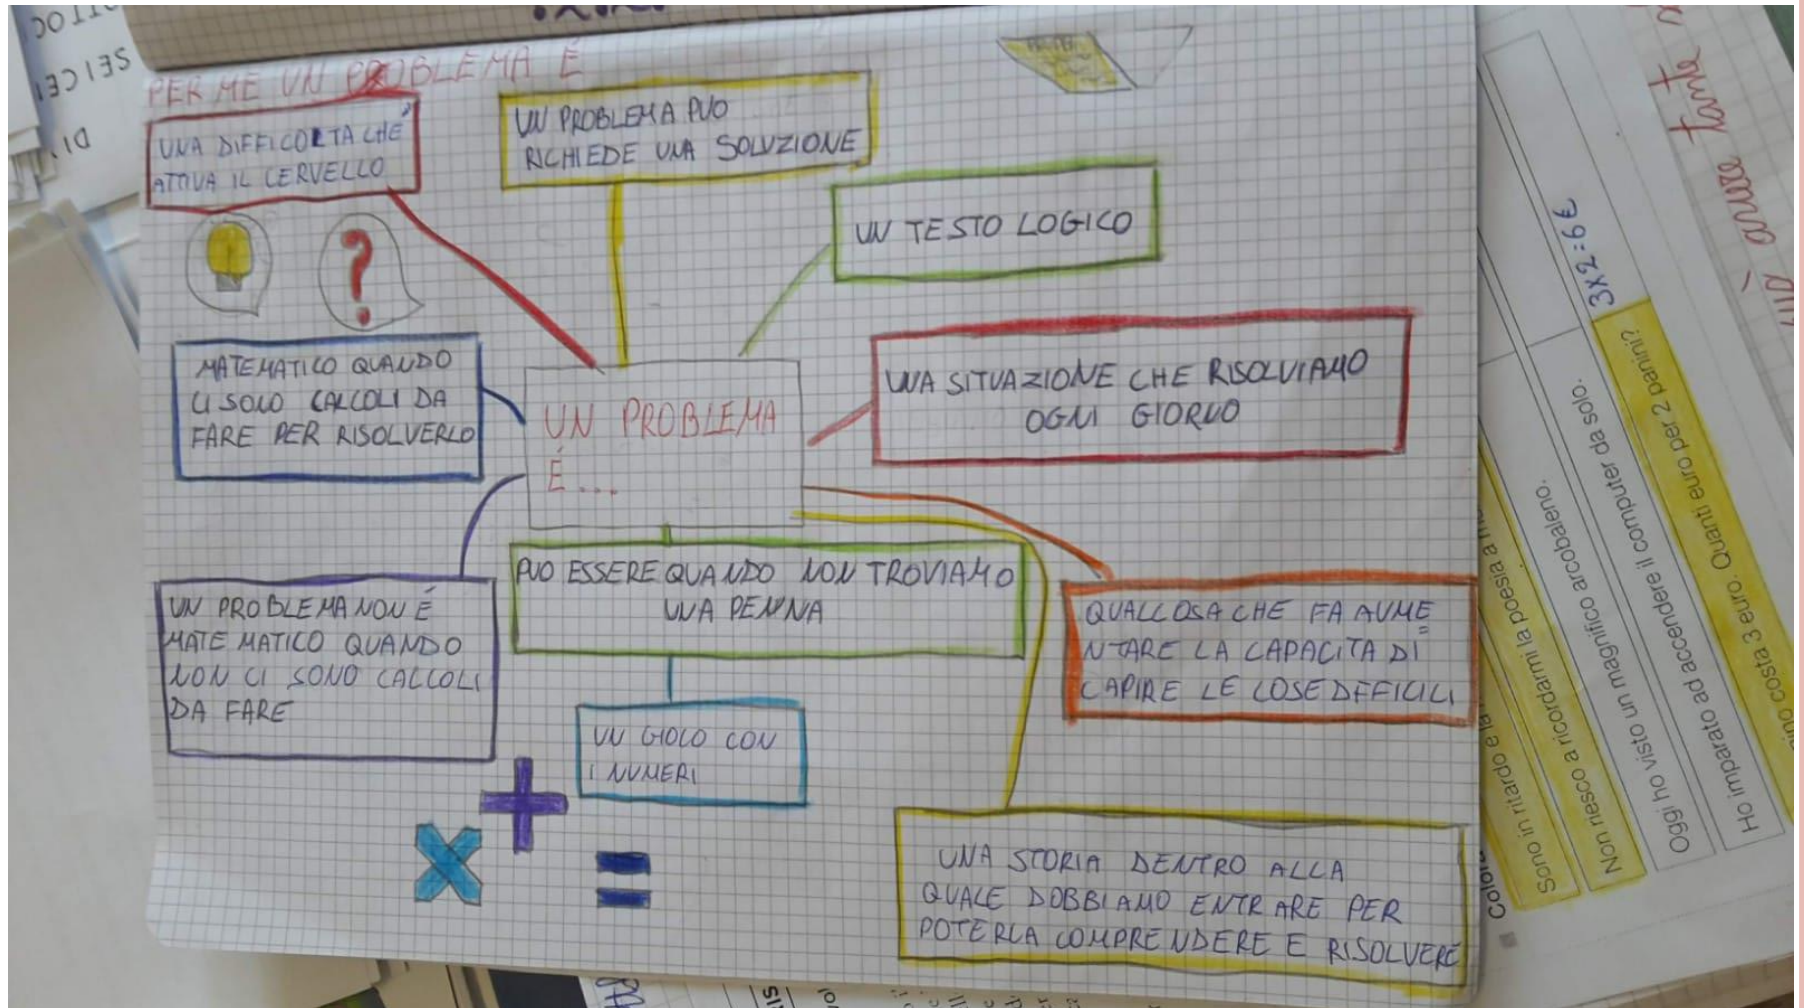 PER ME UN PROBLEMA É
UNA DIFFICOLTA CHE
ATTIVA IL CERVELLO
UN PROBLEMA PUO
RICHIEDE UNA SOLUZIONE
UN TESTO LOGICO
?
MATEMATICO QUANDO
CI SOLO CALCOLI DA
FARE PER RISOLVERLO
UN PROBLEMA
É...
UNA SITUAZIONE CHE RISOLVIAMO
OGNI GIORNO
UN PROBLEMA NON É
MATEMATICO QUANDO
NON CI SONO CALCOLI
DA FARE
PUO ESSERE QUANDO NON TROVIAMO
UNA PENNA
QUALCOSA CHE FA AUME
NTARE LA CAPACITA DI
CAPIRE LE COSE DEFFICILI
UN GIOCO CON
I NUMERI
+
×
=
UNA STORIA DENTRO ALLA
QUALE DOBBIAMO ENTRARE PER
POTERLA COMPRENDERE E RISOLVERE
SEI CE
DI
Colora
Sono in ritardo e la
Non riesco a ricordarmi la poesia a
Oggi ho visto un magnifico arcobaleno.
Ho imparato ad accendere il computer da solo.
nino costa 3 euro. Quanti euro per 2 panini?
3X2=6€